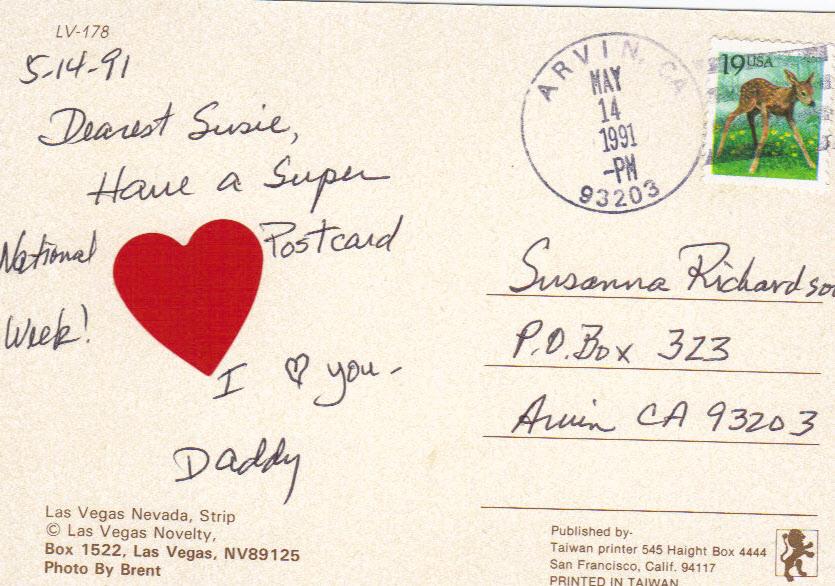 LV-178
5-14-91
Dearest Susie,
Have a Super
National Postcard
Week!
I ♡ you-
Daddy
Las Vegas Nevada, Strip
© Las Vegas Novelty,
Box 1522, Las Vegas, NV89125
Photo By Brent
ARVIN, CA
MAY
14
1991
-PM
93203
19USA
Susanna Richardson
P.O.Box 323
Arvin CA 93203
Published by-
Taiwan printer 545 Haight Box 4444
San Francisco, Calif. 94117
PRINTED IN TAIWAN